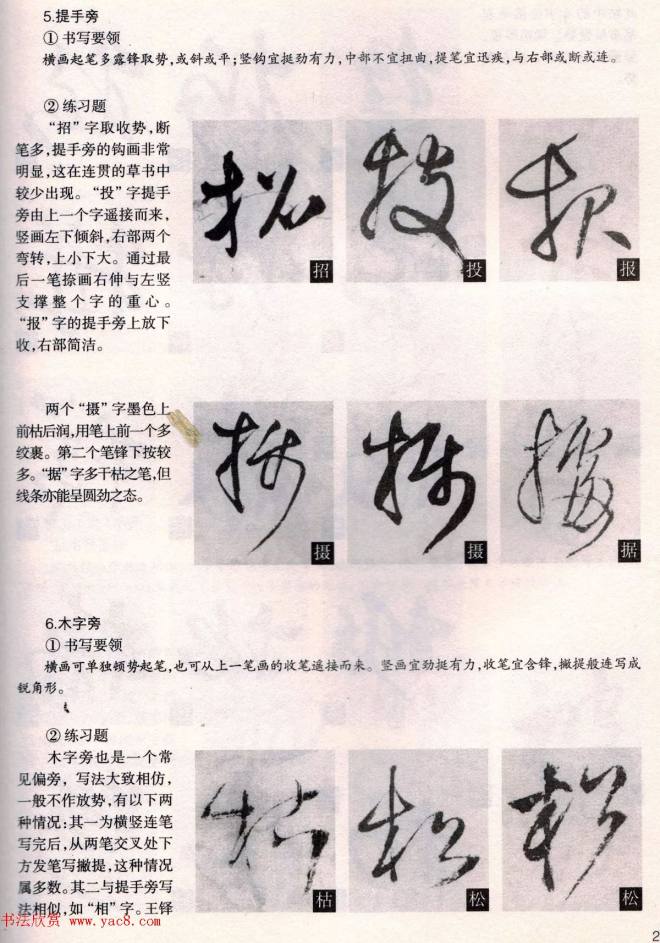 5.提手旁
①书写要领
横画起笔多露锋取势,或斜或平;竖钩宜挺劲有力,中部不宜扭曲,提笔宜迅疾,与右部或断或连。
②练习题
“招”字取收势,断
笔多,提手旁的钩画非常
明显,这在连贯的草书中
较少出现。“投”字提手
旁由上一个字遥接而来,
竖画左下倾斜,右部两个
弯转,上小下大。通过最
后一笔捺画右伸与左竖
支撑整个字的重心。
“报”字的提手旁上放下
收,右部简洁。
招
投
报
两个“摄”字墨色上
前枯后润,用笔上前一个多
绞裹。第二个笔锋下按较
多。“据”字多干枯之笔,但
线条亦能呈圆劲之态。
摄
摄
据
6.木字旁
①书写要领
横画可单独顿势起笔,也可从上一笔画的收笔遥接而来。竖画宜劲挺有力,收笔宜含锋,撇提般连写成
锐角形。
②练习题
木字旁也是一个常
见偏旁,写法大致相仿,
一般不作放势,有以下两
种情况:其一为横竖连笔
写完后,从两笔交叉处下
方发笔写撇提,这种情况
属多数。其二与提手旁写
法相似,如“相”字。王铎
枯
松
松
书法欣赏 www.yac8.com
2